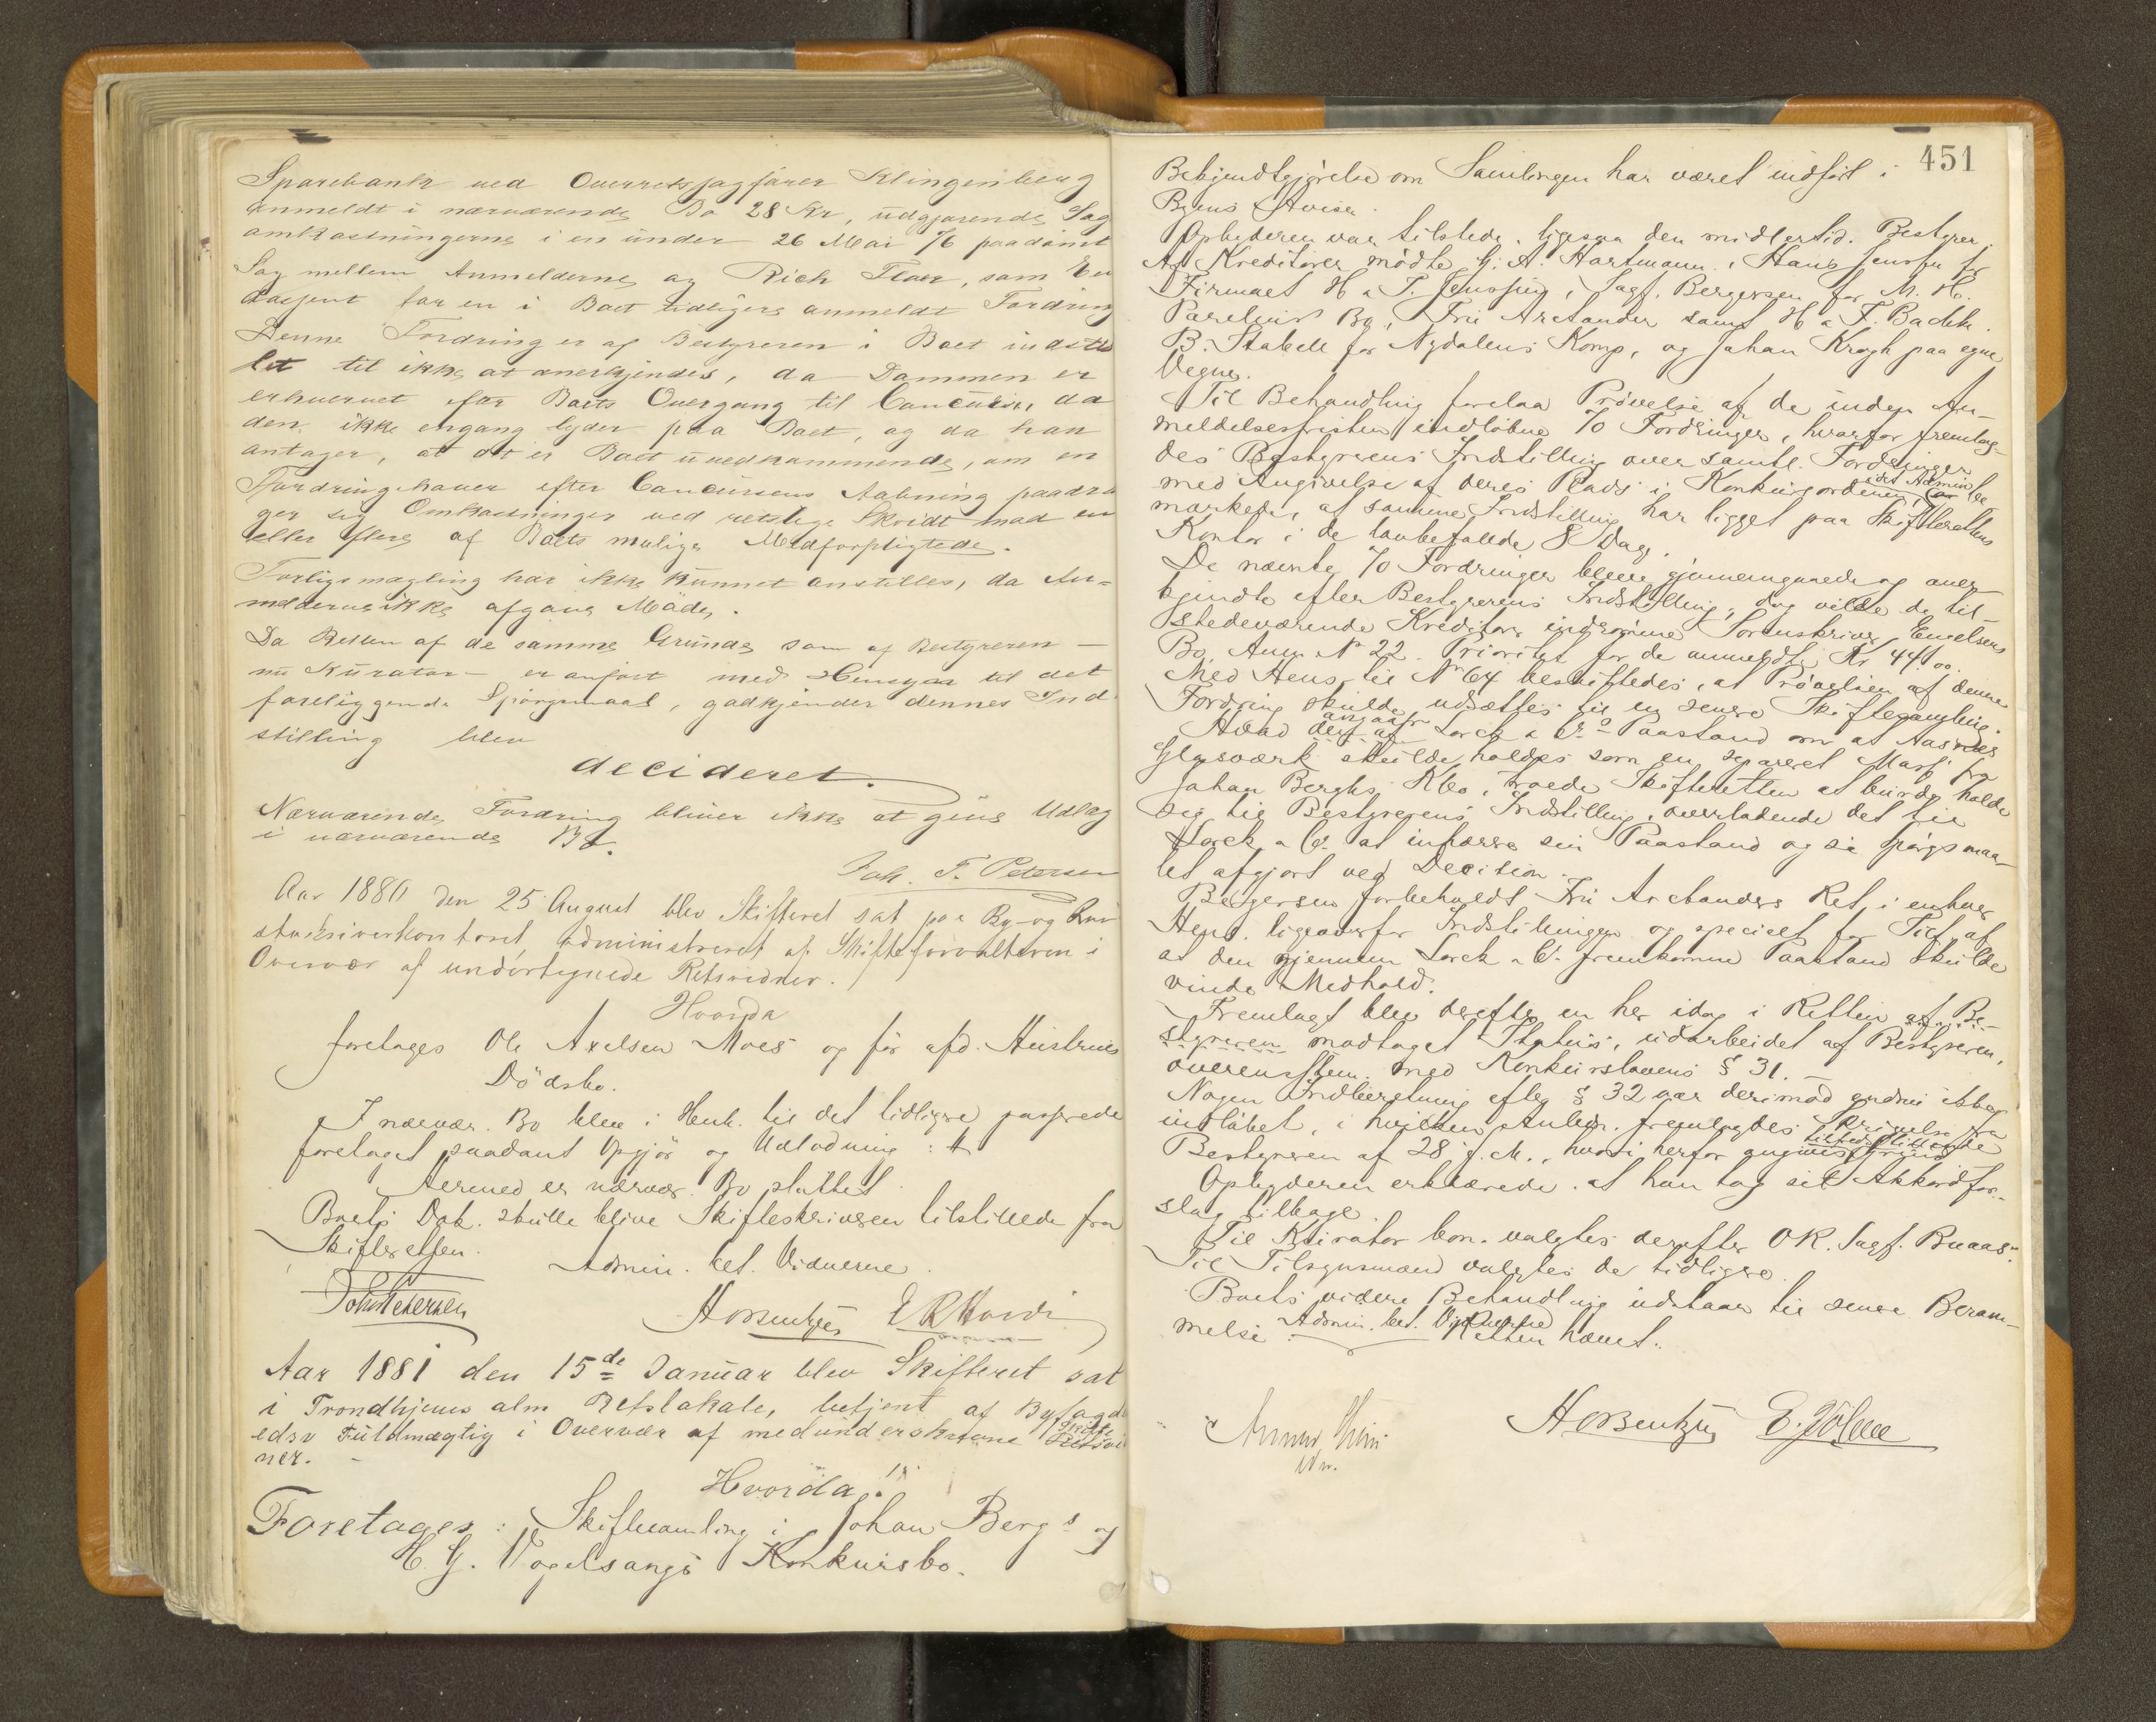 Sparebank ved Overretssagfører Klingenberg
anmeldt i nærværende Bo 28 Kr, udgjørende Sag
omkostningerne i en under 26 Mai 76 paadømt
Sag mellem Anmelderne og Rich Floer, som En
dossent for en i Boet tidligere anmeldt Fordring
Denne Fordring er af Bestyreren i Boet indstil
let til ikke at anerkjendes, da Dommen er
erhvervet efter Boets Overgang til Concurs, da
den ikke engang lyder paa Boet, og da han
antager, at det er Boet uvedkommende, om en
Fordringshaver efter Concursens Aabning paadra
ger sig Omkostninger ved retslige Skridt mod en
eller flere af Boets mulige Medforpligtede.
Forligsmægling har ikke kunnet anstilles, da An-
melderne ikke afgave Møde.
Da Retten af de samme Grunde som af Bestyreren –
nu Kurator – er anført med Hensyn til det
foreliggende Spørgsmaal, godkjender dennes Ind
stilling blev
decideret.
Nærværende Fordring bliver ikke at give Udlæg
i nærværende Bo.
Joh. F. Petersen
Aar 1880 den 25 August blev Skifteret sat paa By- og Raad
stueskriverkontoret, administreret af Skifteforvalteren i
Overvær af undertegnede Retsvidner.
Hvorda
foretages Ole Axelsen Moes og før afd. Hustrues
Dødsbo.
I nærvær. Bo blev i Henh. til det tidligere passerede
foretaget saadant Opgjør og Udlodning:
Hermed er nærvær. Bo sluttet.
Boets Dok. skulle blive Skifteskriveren tilstillede fra
Skifteretten.
Admin. bet. Vidnerne.
Joh. Petersen
A Bentzen E R Hovde
Aar 1881 den 15de Januar blev Skifteret sat
i Trondhjems alm Retslokale, betjent af Byfogd
edsv Fuldmægtig i Overvær af medunderskrevne Retsvid
ner. –
Hvorda:
Foretages: Skiftesamling i Johan Berg's og
H G. Vogelsangs Konkursbo.
451
Bekjendtgjørelse om Samlingen har været indført i
Byens Aviser.
Opbyderen var tilstede, ligesaa den midlertid. Bestyrer.
Af Kreditorer mødte G. A. Hartmann, Hans Jenssen for
Firmaet H & T. Jenssen, Sagf. Bergersen for M. H.
Parelius Bo, Fru Arctander samt H & F. Bachke.
B. Stabell for Nydalens Komp, og Johan Krogh paa egne
Vegne.
Til Behandling forelaa Prøvelse af de inden An-
meldelsesfristen indløbne 70 Fordringer, hvorfor fremlag-
des Bestyrerens Indstilling over samtl. Fordringer
med Angivelse af deres Plads i Konkursordenen, idet Admin be
mærkede, at samme Indstilling har ligget paa Skifterettens
Kontor i de lovbefalede 8 Dage.
De nævnte 70 Fordringer bleve gjennemgaaede og aner-
kjendte efter Bestyrerens Indstilling, dog vilde de til-
stedeværende Kreditorer indrømme Sorenskriver Engelsens
Bo, Anm. No 22. Prioritet for de anmeldte Kr 44.00.
Med Hens. til No 64 besluttedes, at Prøvelsen af denne
Fordring skulde udsættes til en senere Skiftesamling.
Hvad angaar Lorck & Co's Paastand om at Aasnæs
Glasværk skulde holdes som en separat Masse fra
Johan Berghs Kbo, troede Skifteretten at burde holde
sig til Bestyrerens Indstilling, overladende det til
Lorck & Co. at inhærere sin Paastand og se Spørgsmaa-
let afgjort ved Decision.
Bergersen forbeholdt Fru Arctanders Ret i enhver
Hens. ligeoverfor Indstillingen og specielt for Tilf. af
at den gjennem Lorck & Co. fremkomne Paastand skulde
vinde Medhold.
Fremlagt blev derefter en her idag i Retten af Be-
styreren modtaget Status, udarbeidet af Bestyreren,
overensstem. med Konkurslovens § 31. –
Nogen Indberetning efter § 32 var derimod endnu ikke
indløbet, i hvilken Anledn. fremlagdes Skrivelse fra
Bestyreren af 28 f. M., hvori herfor angives tilfredsstillende Grund
Opbyderen erklærede, at han tog sit Akkordfor-
slag tilbage.
Til Kurator bon. valgtes derefter OR. Sagf. Buaas.
Til Tilsynsmænd valgtes de tidligere.
Boets videre Behandling udstaar til senere Beram-
melse. Admin. bet. Vidnerne
Retten hævet.
A Bentzen